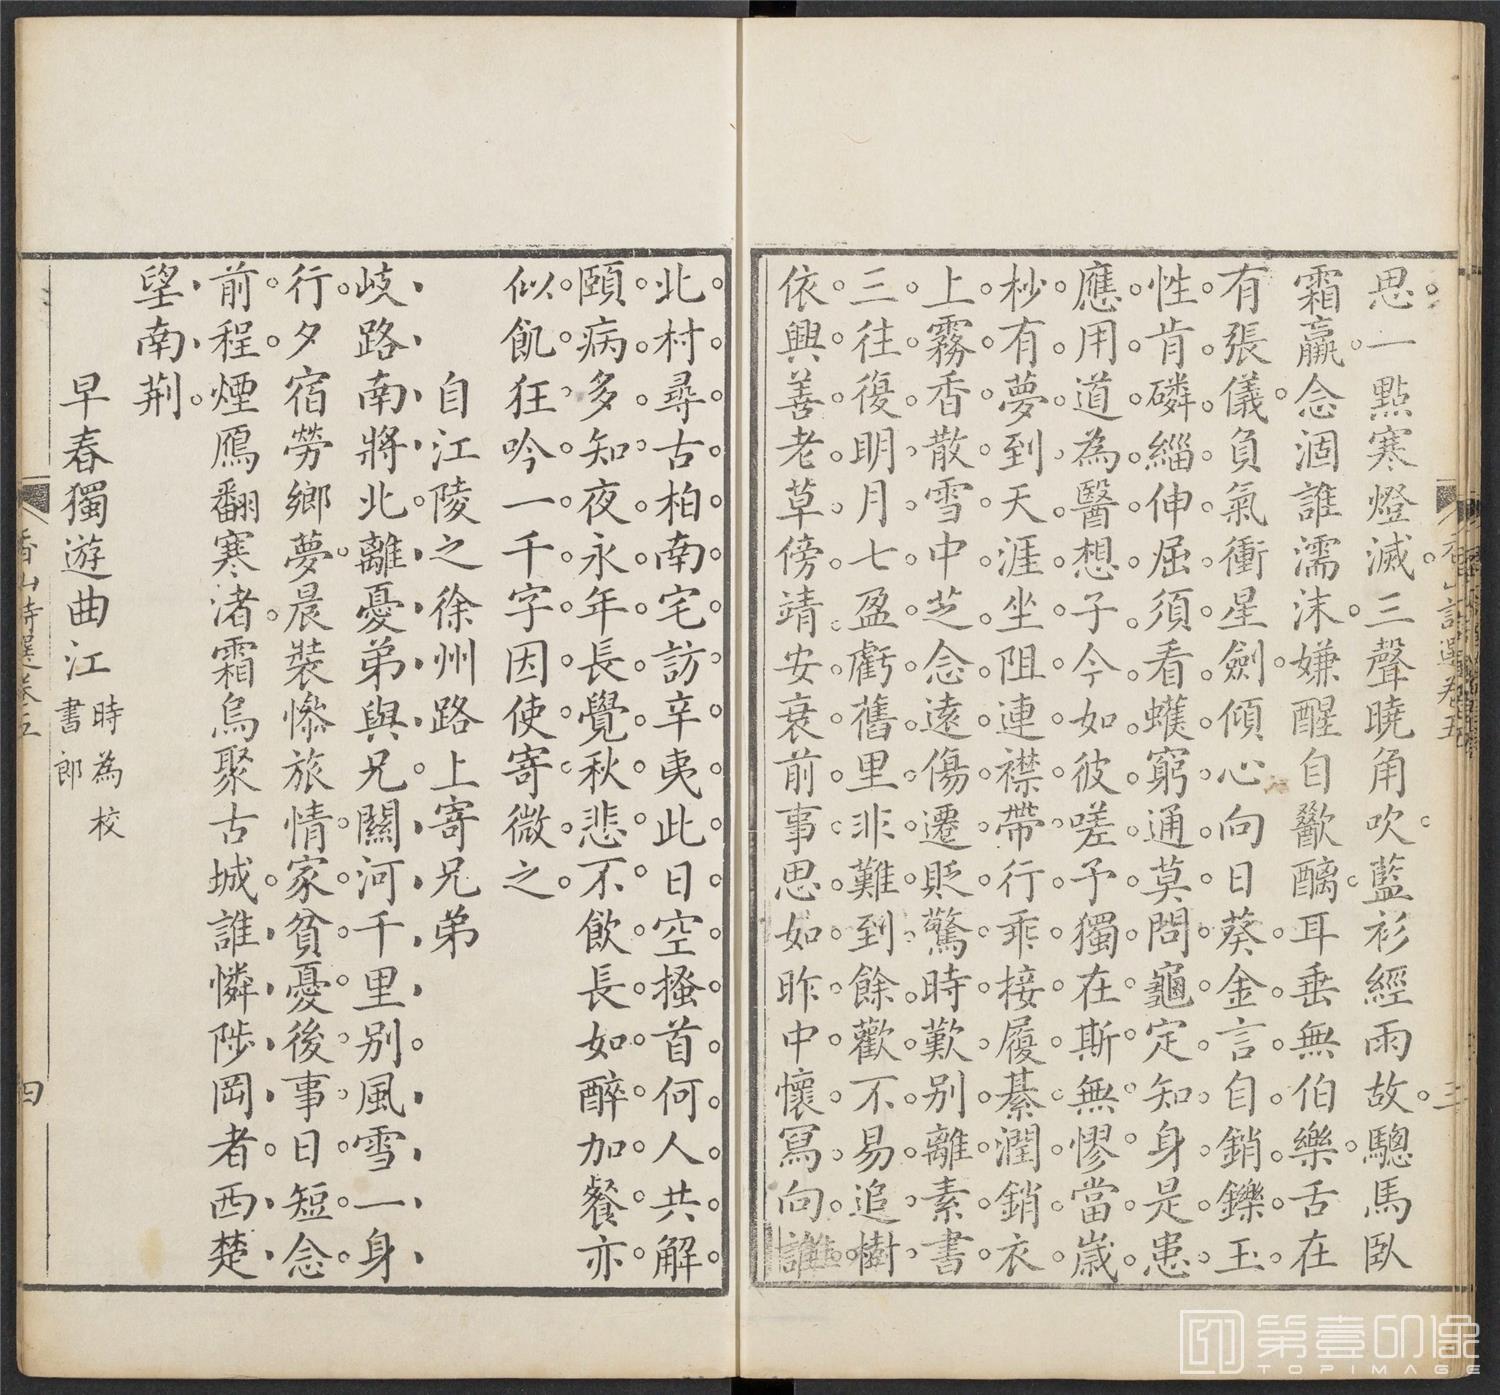 思一點寒燈滅三聲曉角吹藍衫經雨故驄馬臥
霜羸念涸誰濡沫嫌醒自歠醨耳垂無伯樂舌在
有張儀負氣衝星劍傾心向日葵金言自銷鑠玉
性肯磷緇伸屈須看蠖窮通莫問龜定知身是患
應用道為醫想子今如彼嗟予獨在斯無憀當歲
杪有夢到天涯坐阻連襟帶行乖接履綦潤銷衣
上霧香散雪中芝念遠傷遷貶驚時歎别離素書
三往復明月七盈虧舊里非難到餘歡不易追樹
依興善老草傍靖安衰前事思如昨中懷寫向誰
香山詩選卷五
三
北村尋古柏南宅訪辛夷此日空搔首何人共解
頤病多知夜永年長覺秋悲不飲長如醉加餐亦
似飢狂吟一千字因使寄微之
自江陵之徐州路上寄兄弟
岐路南將北離憂弟與兄關河千里别風雪一身
行夕宿勞鄉夢晨裝慘旅情家貧憂後事日短念
前程煙鴈翻寒渚霜烏聚古城誰憐陟岡者西楚
望南荆
早春獨遊曲江時為校書郎
香山詩選卷五
四
第壹印像
TOPIMAGE